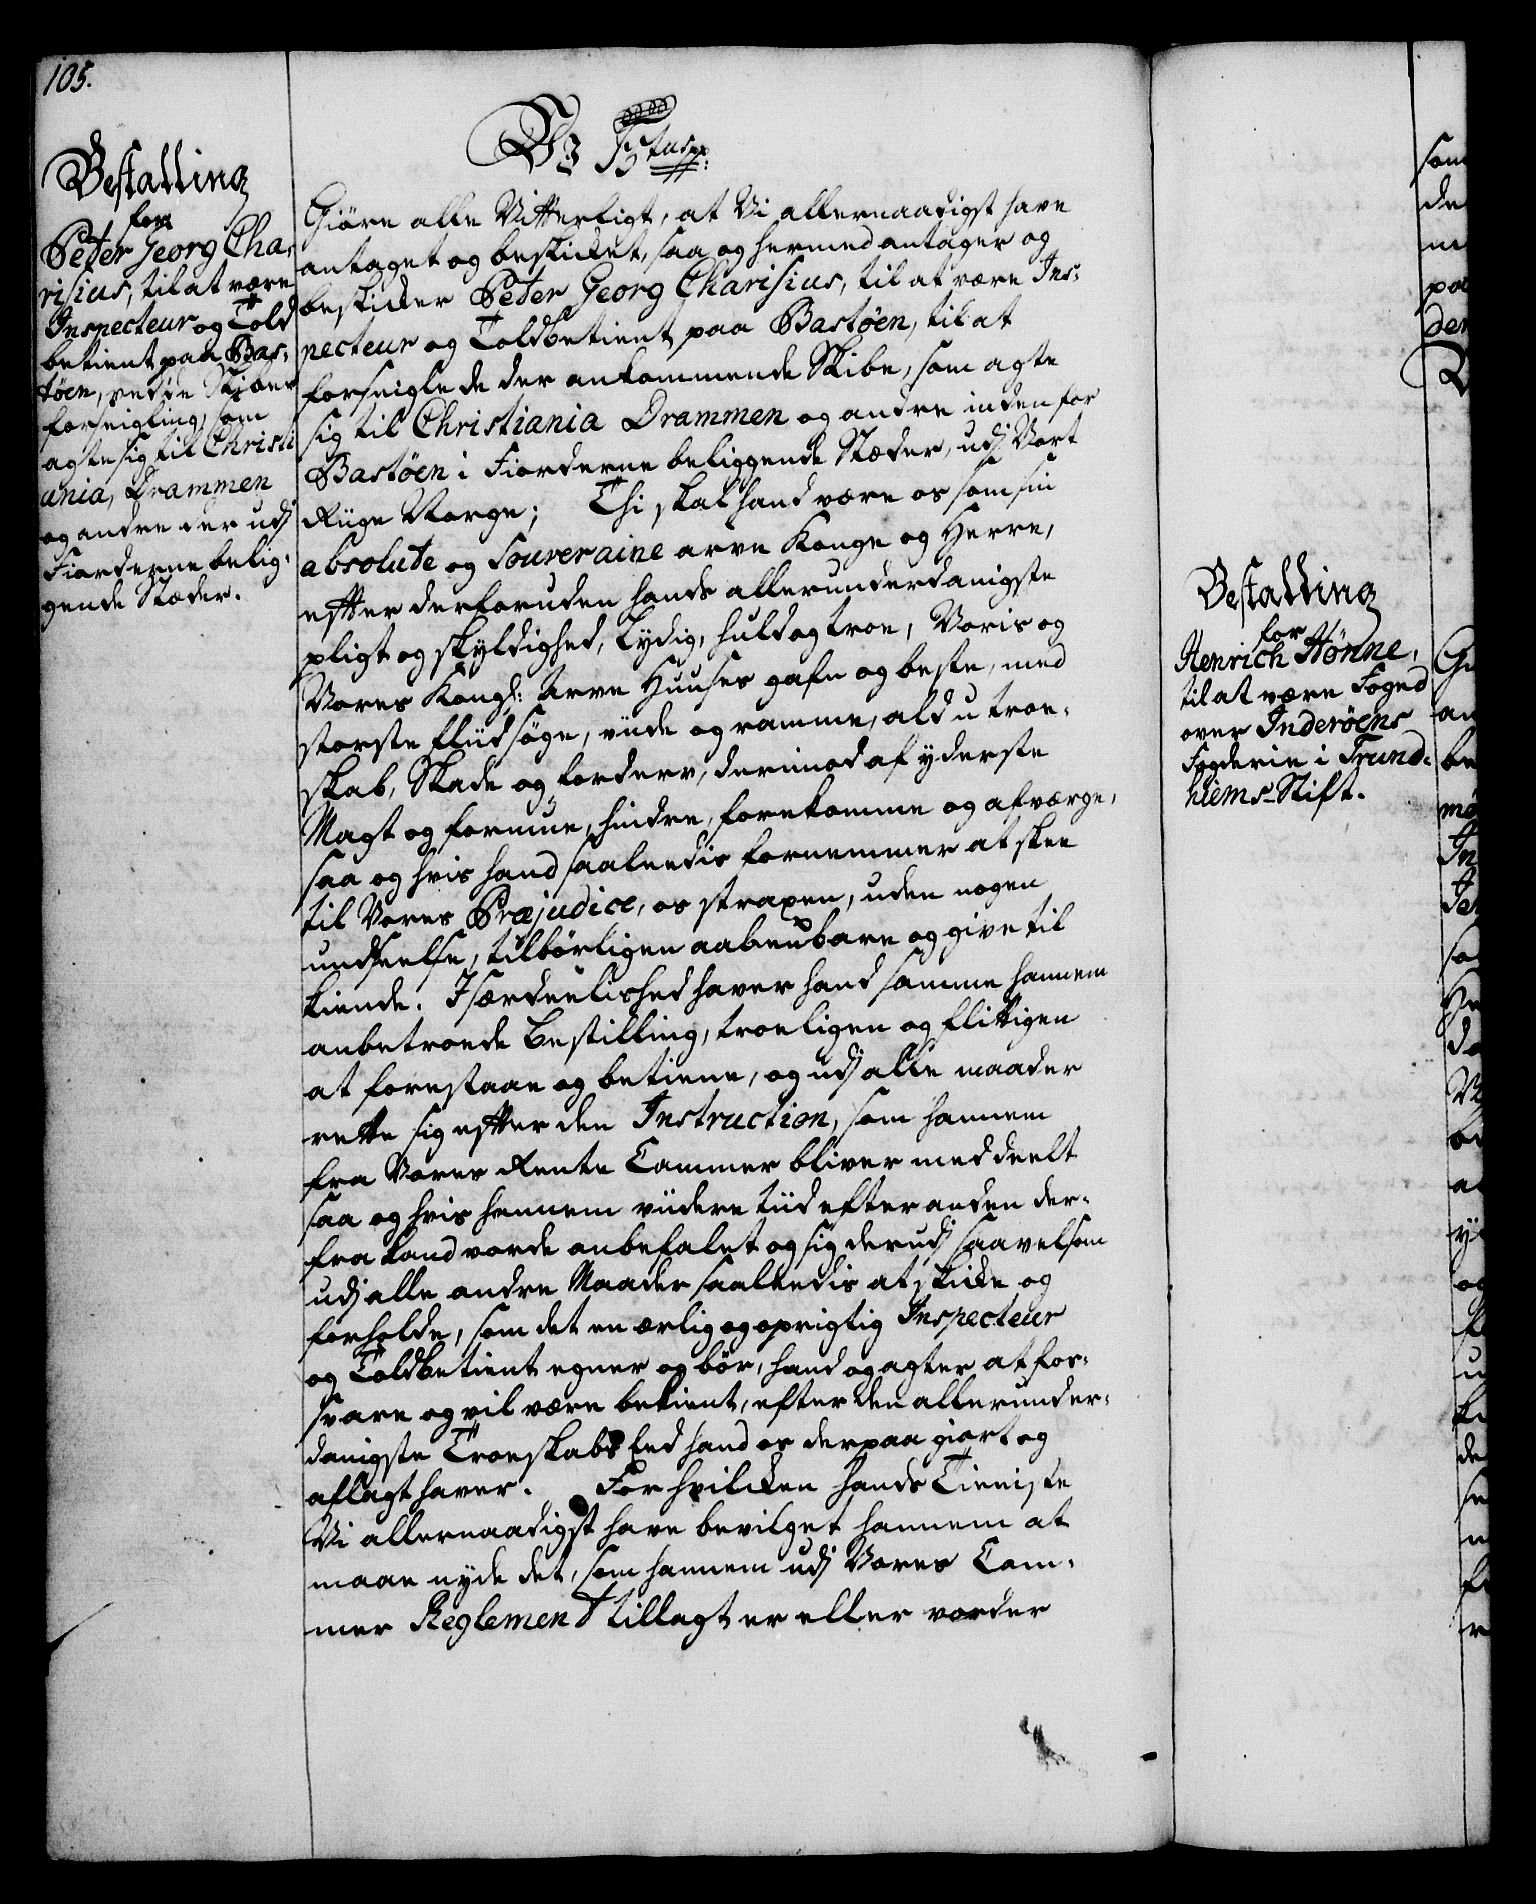 105.
Bestalling
for
Peter Georg Cha-
risius, til at være
Inspecteur og Told
betient paa Bas-
töen, ved de Skibes
forseigling, som
agte sig til Christi
ania, Drammen
og andre der udj
Fiorderne belig-
gende Stæder.
Vi F4tus pp:
Giöre alle Vitterligt, at Vi allernaadigst have
antaget og beskicket, saa og hermed antager og
beskicker Peter Georg Charisius, til at være Ins-
pecteur og Toldbetient paa Bastöen, til at
forseigle de der ankommende Skibe, som agte
sig til Christiania Drammen og andre inden for
Bastöen i Fiorderne beliggende Stæder, udj Vort
Riige Norge; Thi skal hand være os som sin
absolute og Souveraine arve Konge og Herre,
efter derforuden hands allerunderdanigste
pligt og skyldighed, lydig, huld og troe, Voris og
Vores Kongl: Arve Huuses gafn og beste, med
störste fliid söge, viide og ramme, ald utroe-
skab, Skade og forderv, derimod af yderste
Magt og formue, hindre, forekomme og afværge,
saa og hvis hand saaleedis fornemmer at skee
til Vores Præjudice, os straxen, uden nogen
undseelse, tilbörligen aabenbare og give til
kiende. Jsærdeelished haver hand samme hannem
anbetroede bestilling, troeligen og flittigen
at forestaae og betiene, og udj alle maader
rette sig efter den Instruction, som hannem
fra Vores Rente Cammer bliver meddeelt
saa og hvis hannem viidere tiid efter anden der-
fra kand vorde anbefalet og sig derudj saavelsom
udj alle andre Maader saaleedis at skicke og
forholde, som det en ærlig og oprigtig Inspecteur
og Toldbetient egner og bör, hand og agter at for-
svare og vil være bekient, efter den allerunder-
danigste Troeskabs Eed hand os derpaa giort og
aflagt haver. For hvilcken hands Tieniste
Vi allernaadigst have bevilget hannem at
maae nyde det, som hannem udj Vores Cam-
mer Reglement tillagt er eller vorder
Bestalling
for
Henrich Hönne,
til at være Foged
over Inderöens
Fogderie i Trund-
hiems-Stift.